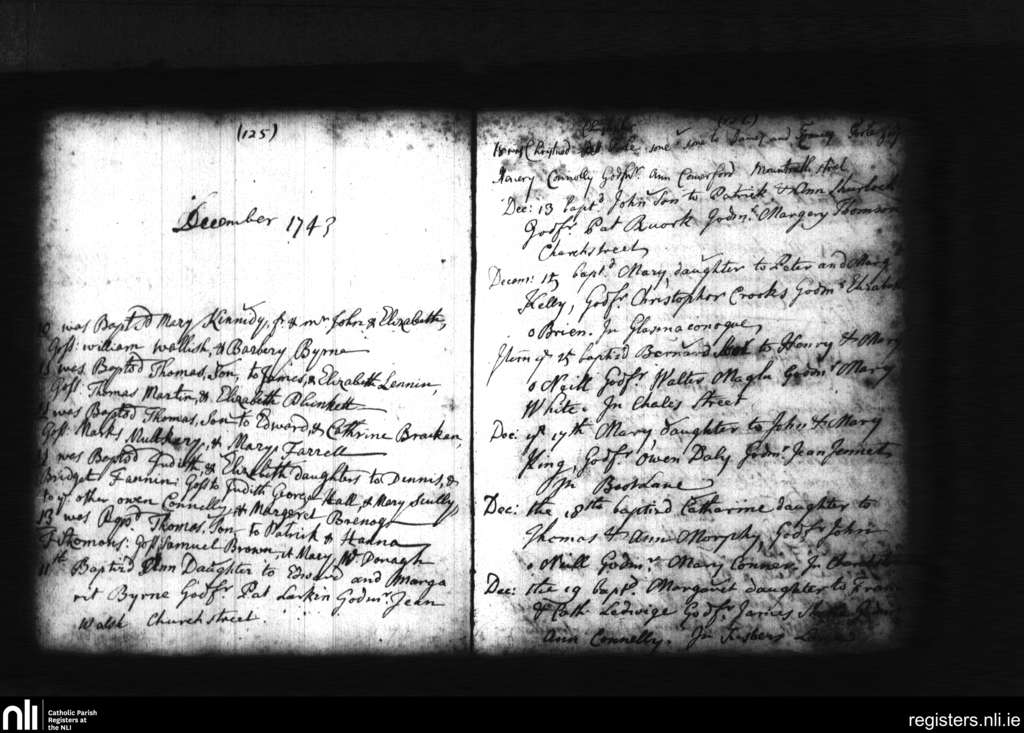 (125)
December 1743
was Baptd Mary Kennidy, fr & mr John & Elizabeth,
Gosl: william Wallish, & Barbery Byrne
13 was Baptd Thomas, Son to James, & Elizabeth Lennin,
Gosl: Thomas Martin, & Elizabeth Plunkett
was Baptd Thomas, Son to Edward & Cathrine Bracken,
Gosl: Marks & Mary Farrell
was Baptd Judith, & Elizabeth daughters to Dennis, &
Bridget Fannin: Gosl to Judith George Hall, & Mary Scully
to ye other owen Connelly, & Margeret
13 was Bapd Thomas, Son to Patrick & Hanna
Gosl Samuel Brown, & Mary Mc Donagh
11th Baptzd Ann Daughter to Edward and Marga
rit Byrne Godfr Pat Larkin Godmr Jean
Walsh Church street.
was Christned sone to James and
Connolly Godmr Ann Coworford Mountrath street
Dec: 13 bapd John Son to Patrick & Ann
Godfr Pat Ruork Godmr Margery Thomson
Churchstreet
Decem: 15 bapd Mary daughter to Peter and
Kelly, Godfr Christopher Crooks Godmr Elizabeth
o Brien. In Glasmaconogue
Item ye 15 baptizd Bernard to Henry & Mary
o Neill Godfr Walter Godmr Mary
White. In Chales Street
Dec: ye 17th Mary daughter to John & Mary
King, Godfr Owen Daly Godmr Jean Jennet
In Bowlane
Dec: the 18th baptizd Catharine daughter to
Thomas & Ann Morphy, Godfr John
o Neill Godmr Mary Conner. In
Dec: the 19 bapd Margaret daughter to Fran:
& Cath Ledwige Godfr James
Ann Connelly. In
nli
Catholic Parish
Registers at
the NLI
registers.nli.ie